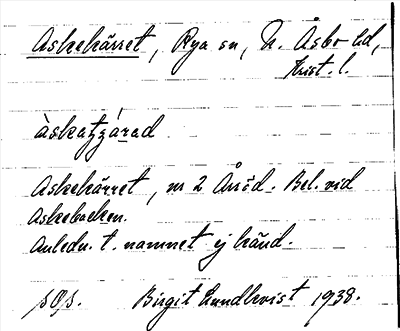 Askekärret, Rya sn, N. Åsbo hd,
Krist. l.
Askekärret, nr 2 Årröd. Bel. vid
Askebacken.
Anledn. t. namnet ej känd.
Birgit Lundkvist 1938.